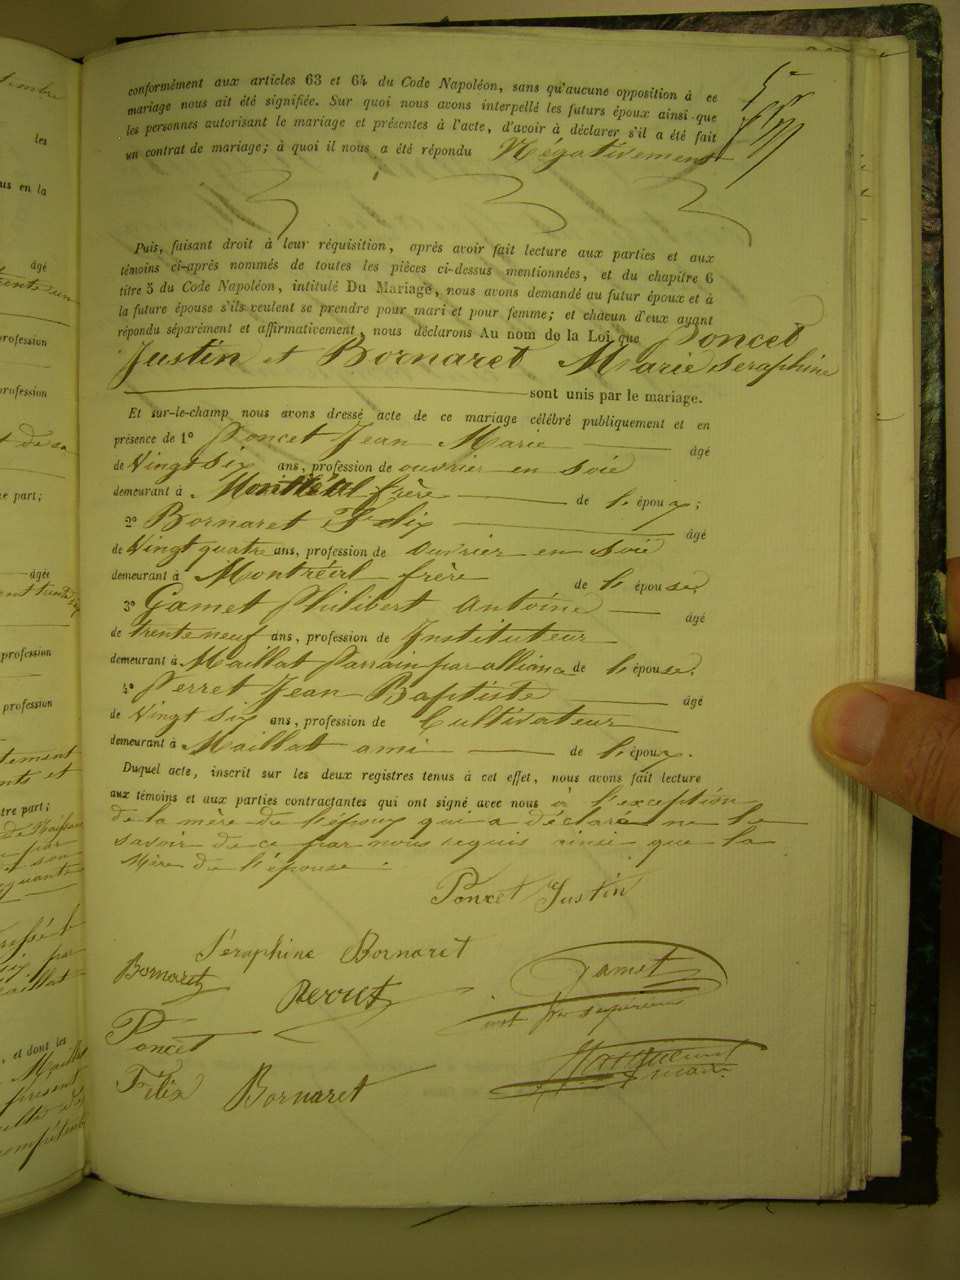 conformément aux articles 63 et 64 du Code Napoléon, sans qu'aucune opposition à ce
mariage nous ait été signifiée. Sur quoi nous avons interpellé les futurs époux ainsi que
les personnes autorisant le mariage et présentes à l'acte, d'avoir à déclarer s'il a été fait
un contrat de mariage; à quoi il nous a été répondu Négativement
Puis, faisant droit à leur réquisition, après avoir fait lecture aux parties et aux
témoins ci-après nommés de toutes les pièces ci-dessus mentionnées, et du chapitre 6
titre 5 du Code Napoléon, intitulé Du Mariage, nous avons demandé au futur époux et à
la future épouse s'ils veulent se prendre pour mari et pour femme; et chacun d'eux ayant
répondu séparément et affirmativement, nous déclarons Au nom de la Loi que Poncet
Justin et Bornaret Marie Seraphine
sont unis par le mariage.
Et sur-le-champ nous avons dressé acte de ce mariage célébré publiquement et en
présence de 1º Poncet Jean Marie âgé
de Vingt six ans, profession de ouvrier en soie
demeurant à Montréal frère de l'époux;
2º Bornaret Felix âgé
de Vingt quatre ans, profession de ouvrier en soie
demeurant à Montréal frère de l'épouse.
3º Gamet Philibert Antoine âgé
de trente neuf ans, profession de Instituteur
demeurant à Maillat Parrain par alliance de l'épouse.
4º Perret Jean Baptiste âgé
de Vingt six ans, profession de Cultivateur
demeurant à Maillat ami de l'époux.
Duquel acte, inscrit sur les deux registres tenus à cet effet, nous avons fait lecture
aux témoins et aux parties contractantes qui ont signé avec nous à l'exception
de la mère de l'époux qui a déclaré ne le
savoir de ce par nous requis ainsi que la
Mère de l'épouse.
Poncet Justin
Séraphine Bornaret
Bornaret
Gamet
Poncet
Félix Bornaret
maire